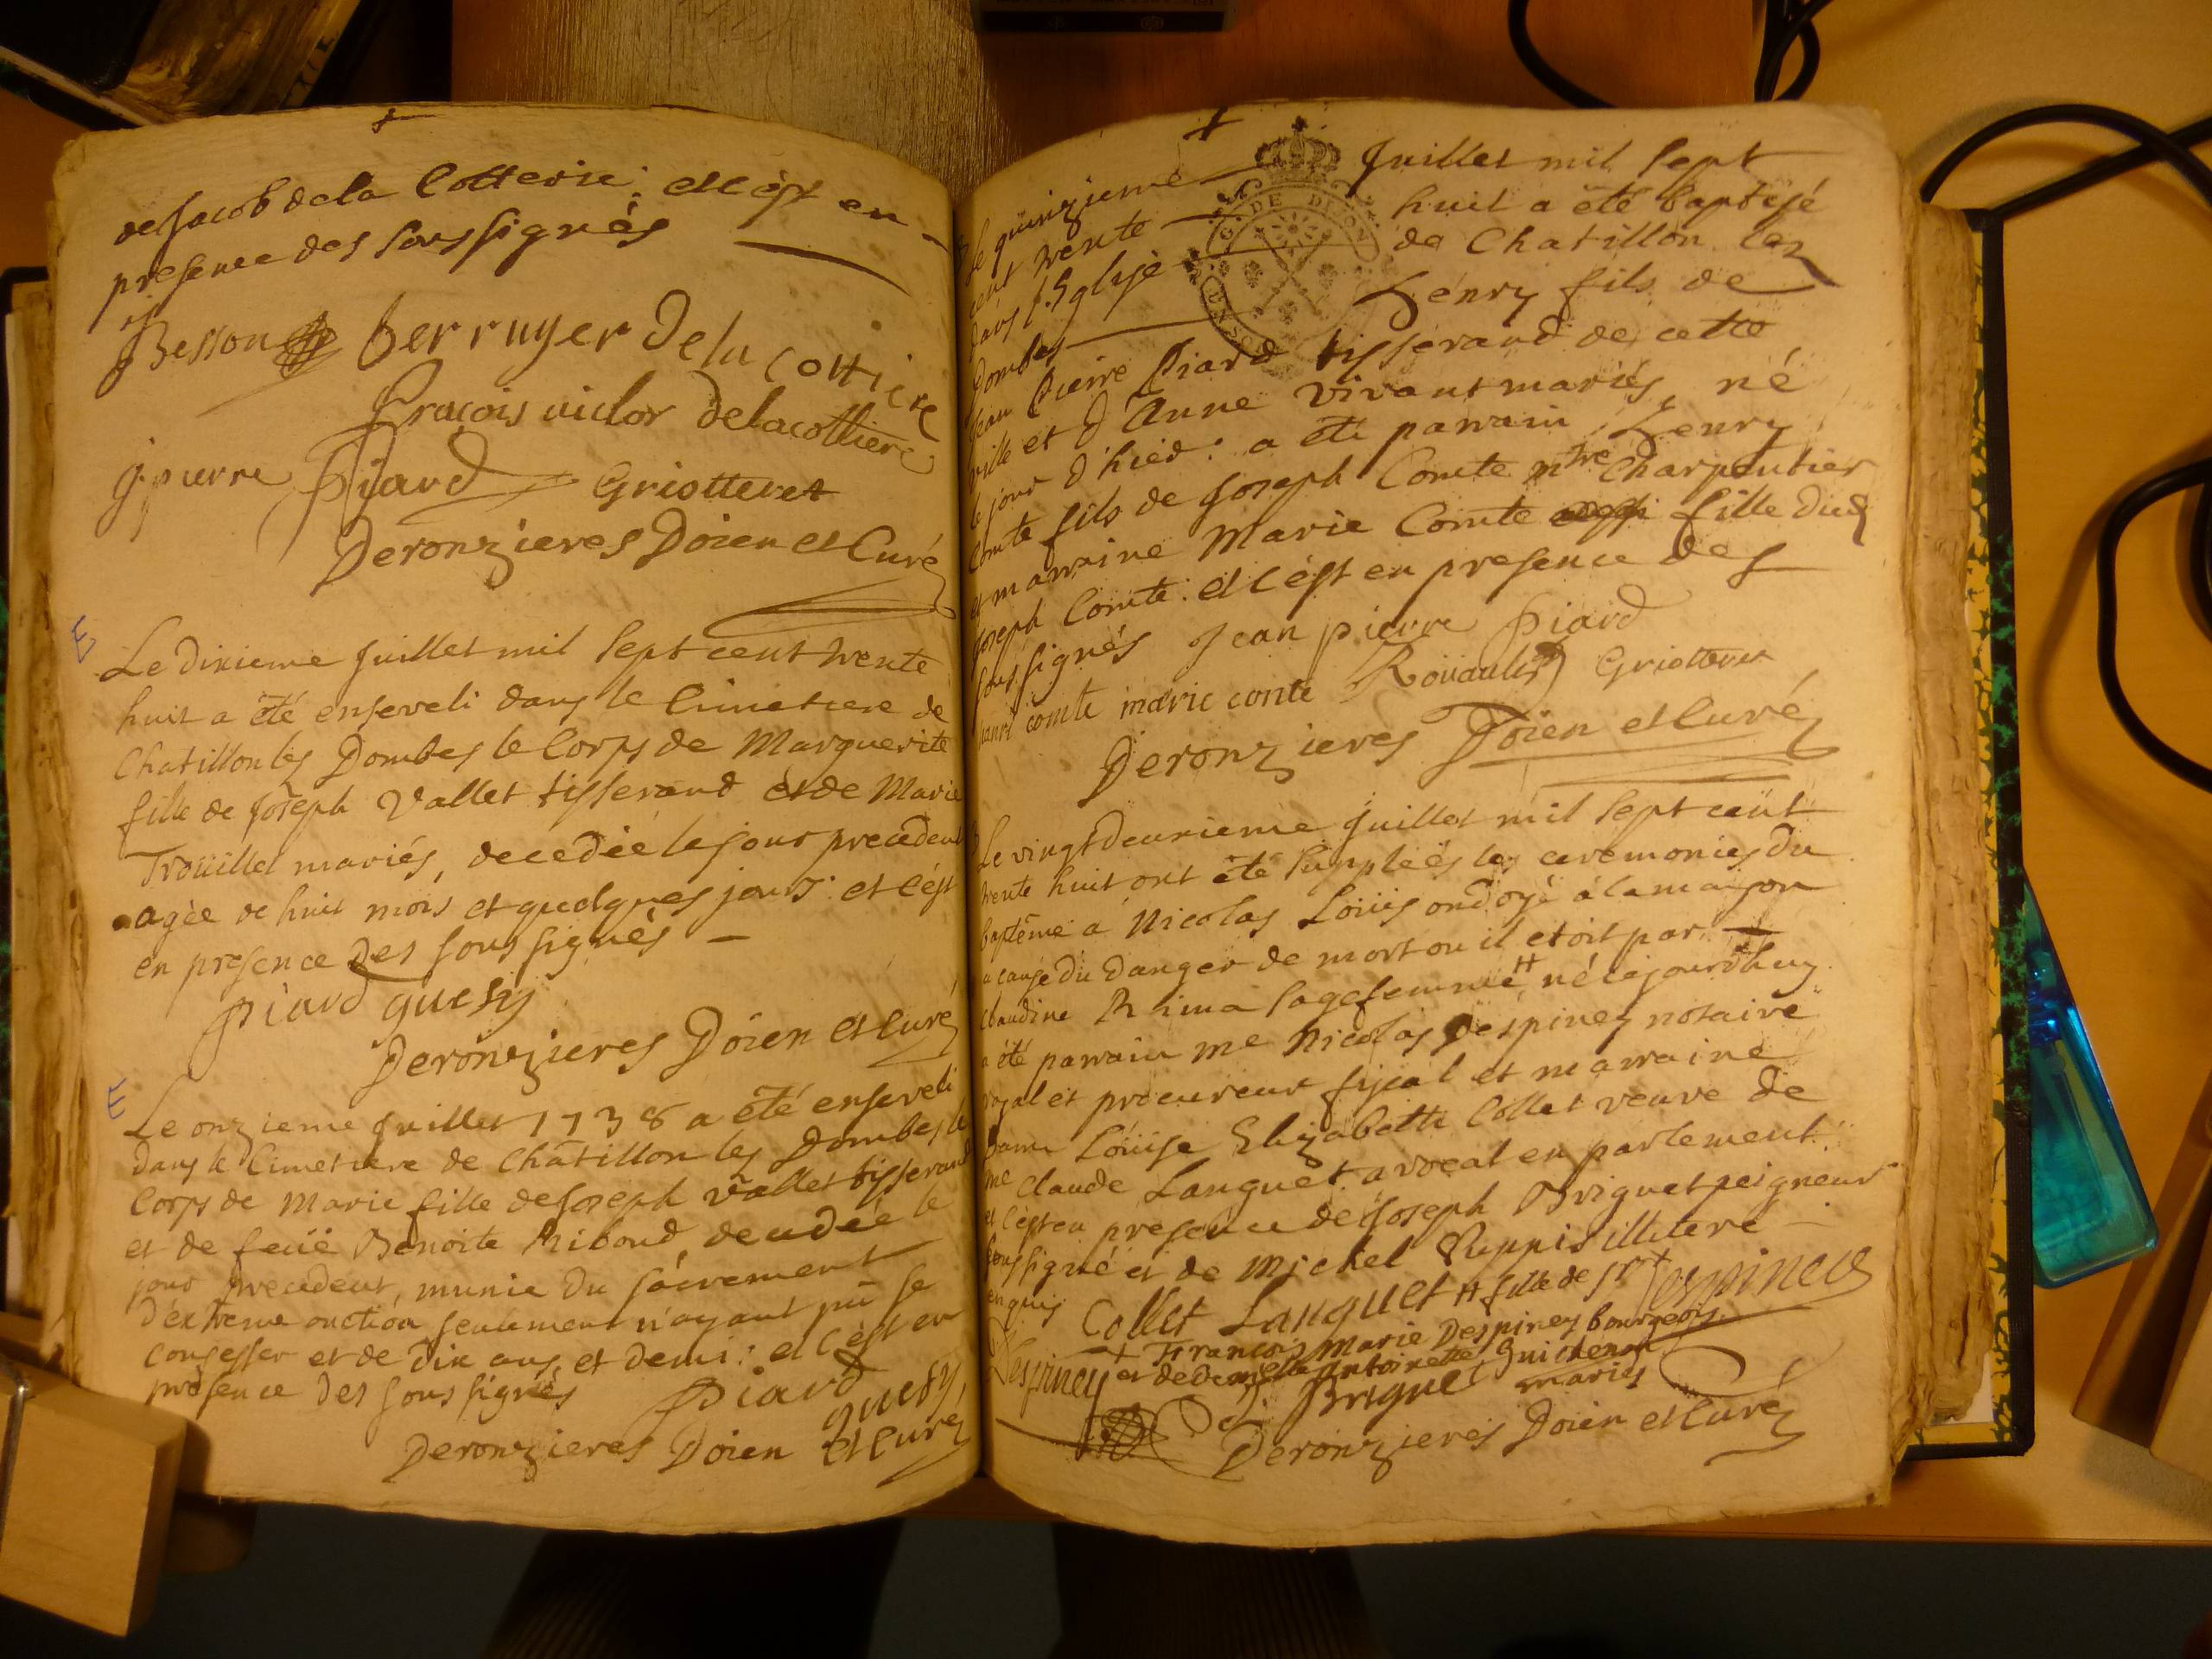 de Jacob de la Cotterie : et c'est en
presence des soussignés
Besson Berruyer Delacottiere
Fraçois victor Delacottiere
j pierre Piard Griotteret
Deronzieres Doien et Curé
E
Le dixieme Juillet mil sept cent trente
huit a été enseveli dans le Cimetiere de
Chatillon les Dombes le Corps de Marguerite
fille de Joseph Vallet tisserand et de Marie
Troüillet mariés, decedée le jour precedent
agée de huit mois et quelques jours : et c'est
en presence des soussignés
Piard guesy
Deronzieres Doien et Curé
E
Le onzieme Juillet 1738 a été enseveli
dans le Cimetiere de Châtillon les Dombes le
Corps de Marie fille de Joseph Vallet tisserand
et de feüe Benoite Riboud, decedée le
jour precedent, munie du sacrement
d'extreme onction seulement n'ayant pu se
confesser et de dix ans et demi : et c'est en
presence des soussignés Piard
guesy
Deronzieres Doien et Curé
Le quinzieme Juillet mil sept
cent trente huit a été baptisé
dans l'Eglise de Chatillon les
Dombes Henry fils de
Jean Pierre Piard tisserand de cette
ville et d'Anne vivant mariés, né
le jour d'hier : a été parrain Henry
Comte fils de Joseph Comte mtre Charpentier
et marraine Marie Comte fille dud
Joseph Comte : et c'est en presence des
soussignés Jean pierre Piard
henri comte marie conte Roüault Griotteret
Deronzieres Doien et Curé
G. DE DIJON
Le vingtdeuxieme Juillet mil sept cent
trente huit ont été supplées les ceremonies du
baptême à Nicolas Loüis ondoyé à la maison
a cause du danger de mort ou il etoit par
Claudine Rhima sagefemme ++ né cejourd'huy
a été parrain me Nicolas Despiney notaire
royal et procureur fiscal et marraine
Dame Loüise Elizabeth Collet veuve de
me Claude Languet avocat en parlement
et c'est en presence de Joseph Briguet peigneur
soussigné et de Michel Puppis illitere
enquis Collet Languet ++ fils de sr Despiney
Despiney + François Marie Despiney bourgeois
et de demlle Antoinette Guichenon
J. Brigue mariés
Deronzieres Doien et Curé